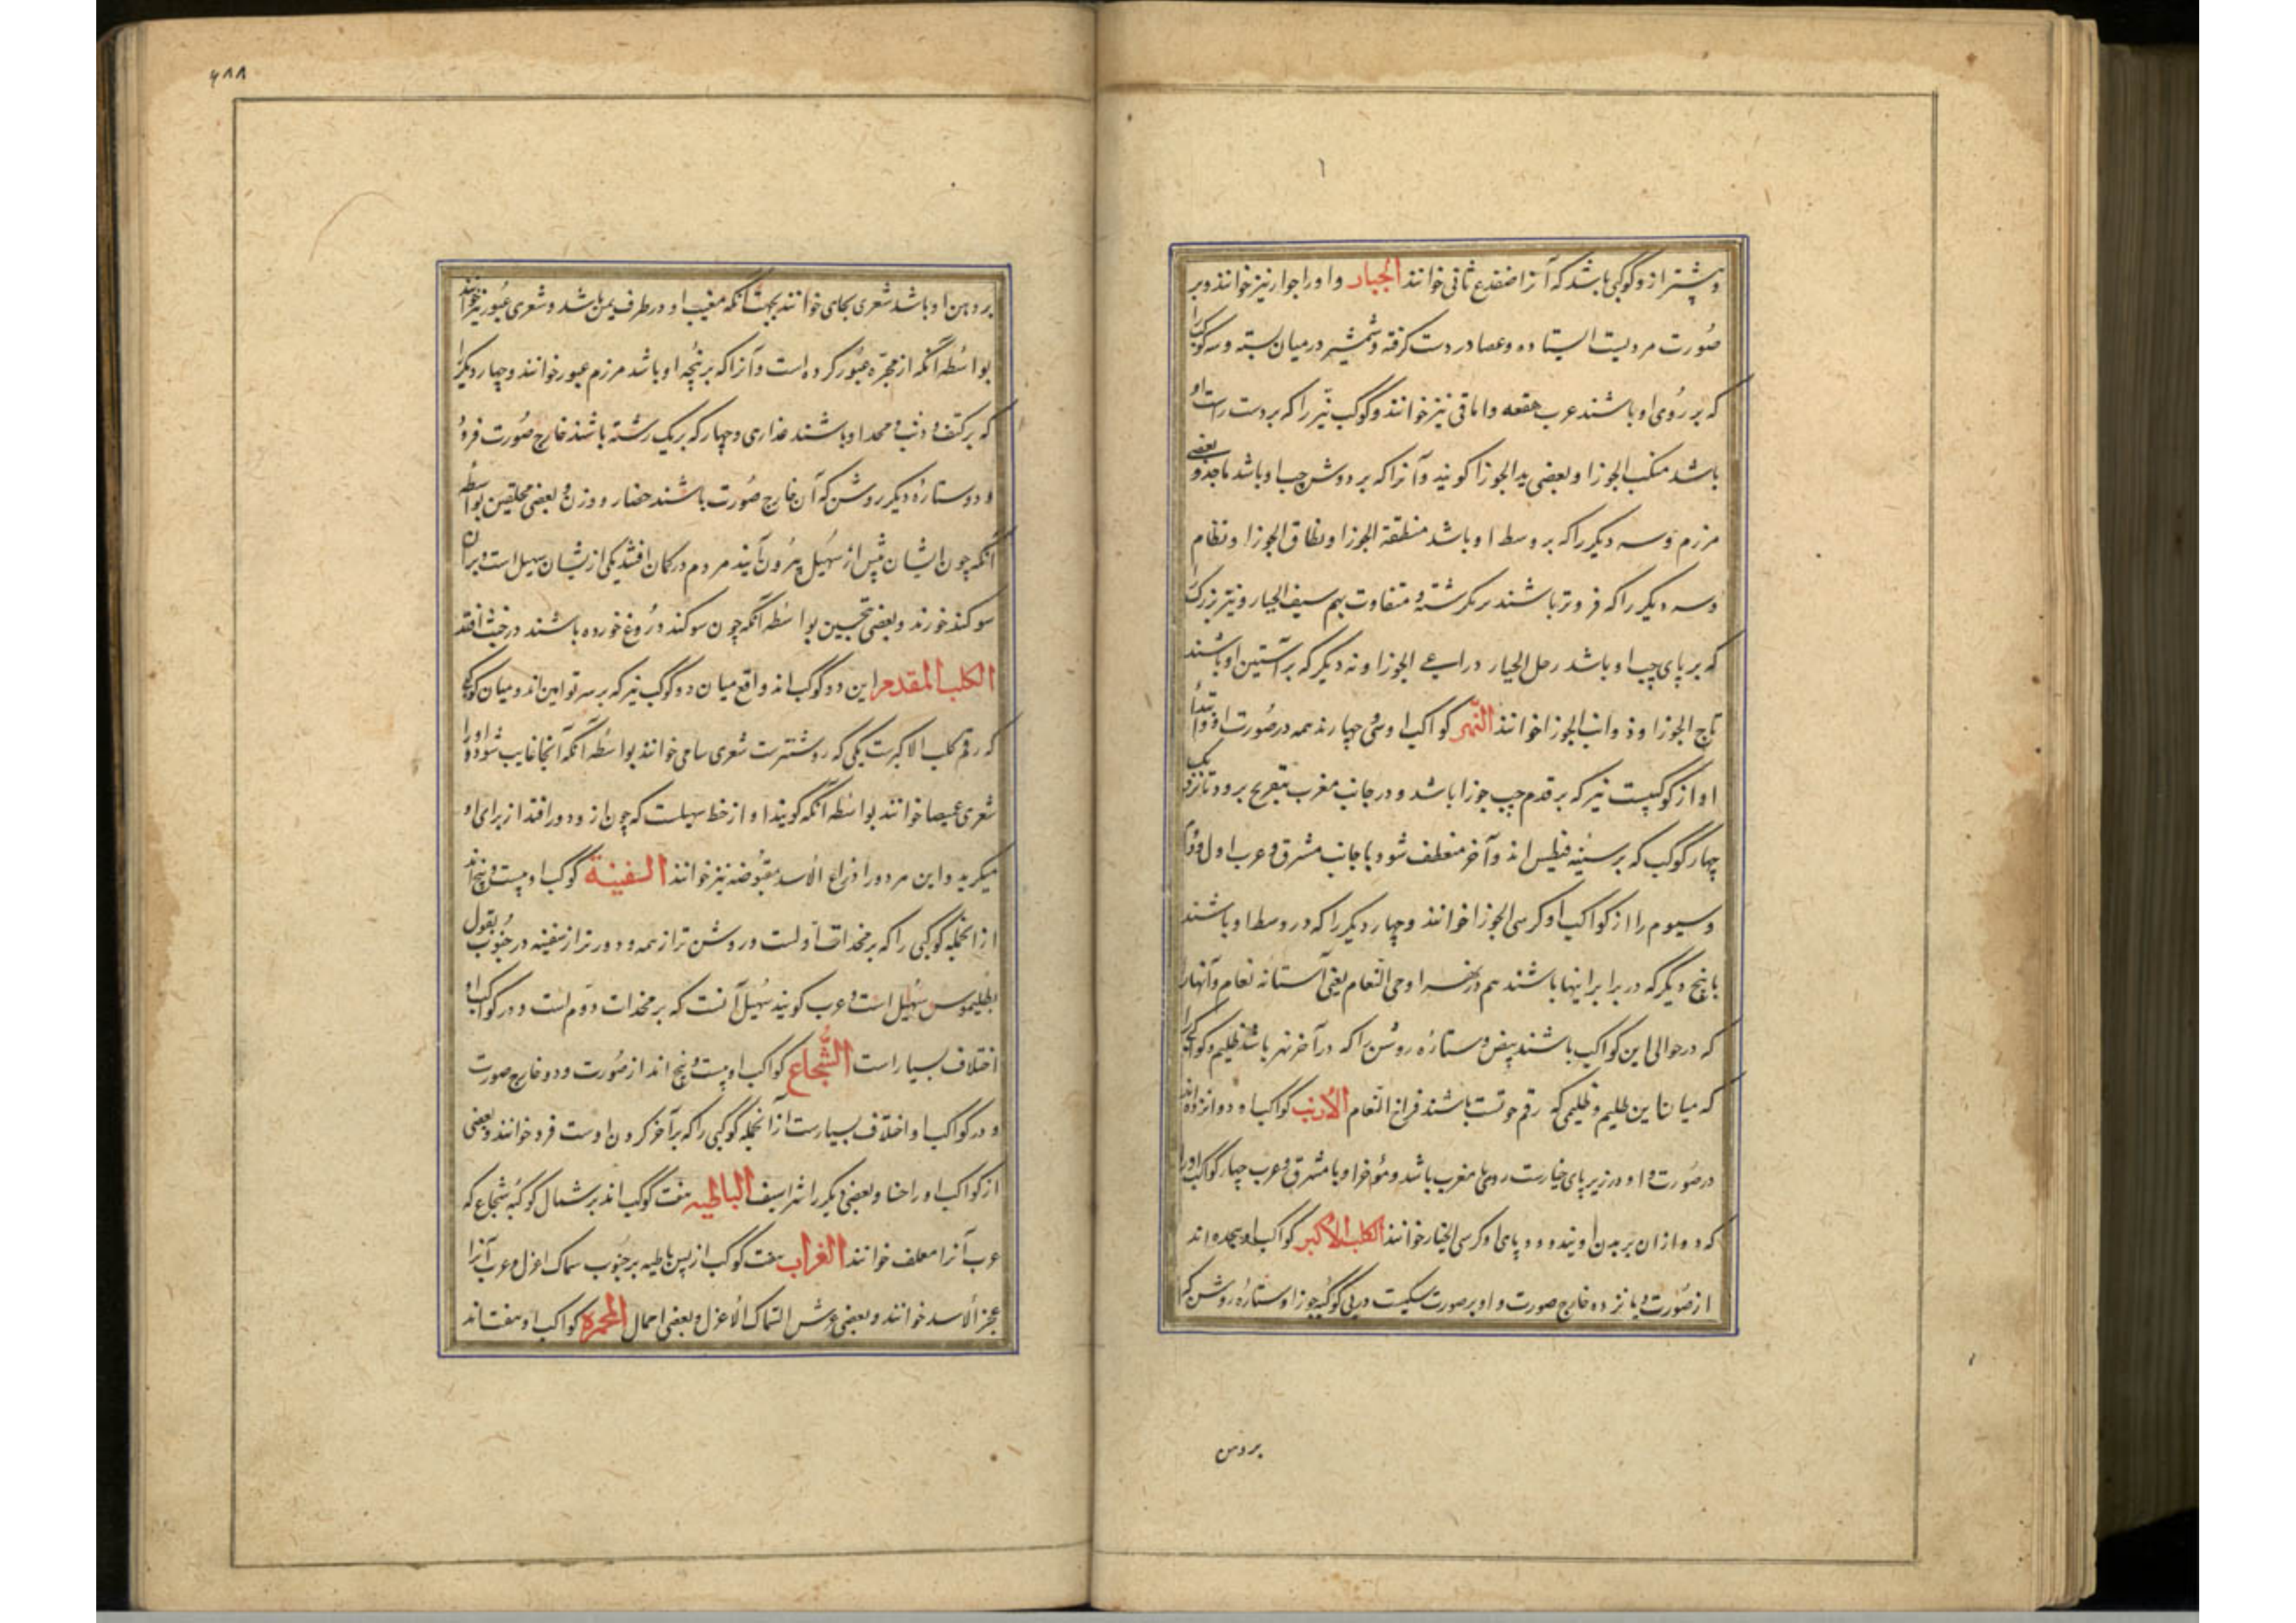 و پیشتر ازو کوکبی باشد که آنرا ضفدع ثانی خوانند الجبار و او را جوزا نیز خوانند و بر
صورت مردیست ایستاده و عصا در دست گرفته و شمشیر در میان بسته و سه کوکب را
که بر روی او باشند عرب هقعه و اثافی نیز خوانند و کوکب نیّر را که بر دست راست او
باشد منکب الجوزا و بعضی ید الجوزا گویند و آنرا که بر دوش چپ او باشد ناجذ و بعضی
مرزم و سه دیگر را که بر وسط او باشد منطقة الجوزا و نطاق الجوزا و نظام
و سه دیگر را که فروتر باشند بر یک رشته و متقاوت بهم سیف الجبار و نیّر بزرگ را
که بر پای چپ او باشد رجل الجبار و راعی الجوزا و نه دیگر که بر آستین او باشند
تاج الجوزا و ذوائب الجوزا خوانند النّهر کواکب او سی و چهارند همه در صورت او و ابتدأ
او از کوکبیست نیّر که بر قدم چپ جوزا باشد و در جانب مغرب بتعریج برود تا نزدیک
چهار کوکب که بر سینه قیطس اند و آخر منعطف شود با جانب مشرق و عرب اول و دوّم
و سیوم را از کواکب او کرسی الجوزا خوانند و چهار دیگر را که در وسط او باشند
با پنج دیگر که در برابر اینها باشند هم در نهر ادحی النعام یعنی آستانه نعام و آنها را
که در حوالی این کواکب باشند بیض و ستاره روشن را که در آخر نهر باشد ظلیم و کواکبی را
که میان این ظلیم و ظلیمی که رقم حوتست باشند فراخ النعام الأرنب کواکب او دوازده اند
در صورت و او در زیر پای جبارست روی با مغرب باشد و مؤخر او با مشرق و عرب چهار کواکب او را
که دو ازان بر بدن اویند و دو بر پای او کرسی الجبار خوانند الکلب الأکبر کواکب او هجده اند
از صورت و یازده خارج صورت و او بر صورت سگیست در پی کوکبه جوزا و ستاره روشن که
بر دهن
۶۸۸
بر دهن او باشد شعری یمانی خوانند بجهت آنکه مغیب او در طرف یمن باشد و شعری عبور نیز خوانند
بواسطه آنکه از مجرّه عبور کرده است و آنرا که بر پنجه او باشد مرزم عبور خوانند و چهار دیگر را
که بر کتف و ذنب و فخذ او باشند عذاری و چهار که بر یک رشته باشند خارج صورت قرود
و دو ستاره دیگر روشن که آن خارج صورت باشند حضار و وزن و بعضی محلفین بواسطه
آنکه چون ایشان پیش از سهیل بیرون آیند مردم در گمان افتند که یکی ازیشان سهیل است و بر آن
سوگند خورند و بعضی محنثین بواسطه آنکه چون سوگند دروغ خورده باشند در حنث افتند
الکلب المقدم این دو کوکب اند واقع میان دو کوکب نیر که بر سر توامین اند و میان کوکبی
که رقم کلب الاکبرست یکی که روشنترست شعری شامی خوانند بواسطه آنکه آنجا غایب شود و او را
شعری غمیصا خوانند بواسطه آنکه گویند او از خط سهیلست که چون ازو دور افتد از برای او
میگرید و این هر دو را ذراع الأسد مقبوضه نیز خوانند السفینة کوکب او چهل و پنج اند
از آنجمله کوکبی را که بر مجداف اولست و روشن تر از همه و دورتر از سفینه در جنوب بقول
بطلیموس سهیل است و عرب گویند سهیل آنست که بر مجداف دوّم است و در کواکب او
اختلاف بسیار است الشّجاع کواکب او بیست و پنج اند از صورت و دو خارج صورت
و در کواکب او اختلاف بسیارست از آنجمله کوکبی را که بر آخر گردن اوست فرد خوانند و بعضی
از کواکب او را خبا و بعضی دیگر را شراسیف الباطیه هفت کوکب اند بر شمال کوکبه شجاع که
عرب آنرا معلف خوانند الغراب هفت کوکب از پس باطیه بر جنوب سماک اعزل و عرب آنرا
عجز الأسد خوانند و بعضی عرش السماک الأعزل و بعضی احمال المجمره کواکب او هفت اند